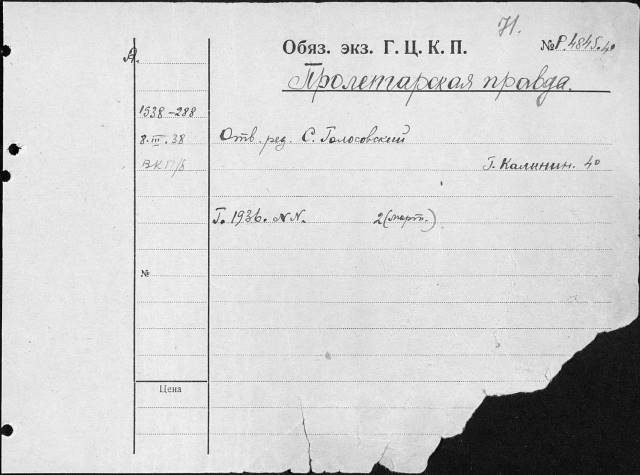 71.
Обяз. экз. Г. Ц. К. П. № Р.4845.40
А.
Пролетарская правда.
1538-288
8.III.38 Отв. ред. С. Голосовский
ВКП/б Г. Калинин. 40
Г. 1936. NN. 2 (март.)
№
Цена